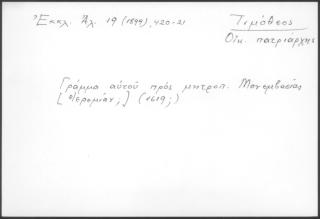 Ἐκκλ. Ἀλ. 19 (1899), 420-21
Τιμόθεος
Οἰκ. πατριάρχης
Γράμμα αὐτοῦ πρός μητροπ. Μονεμβασίας
[Ἱερεμίαν;] (1619;)